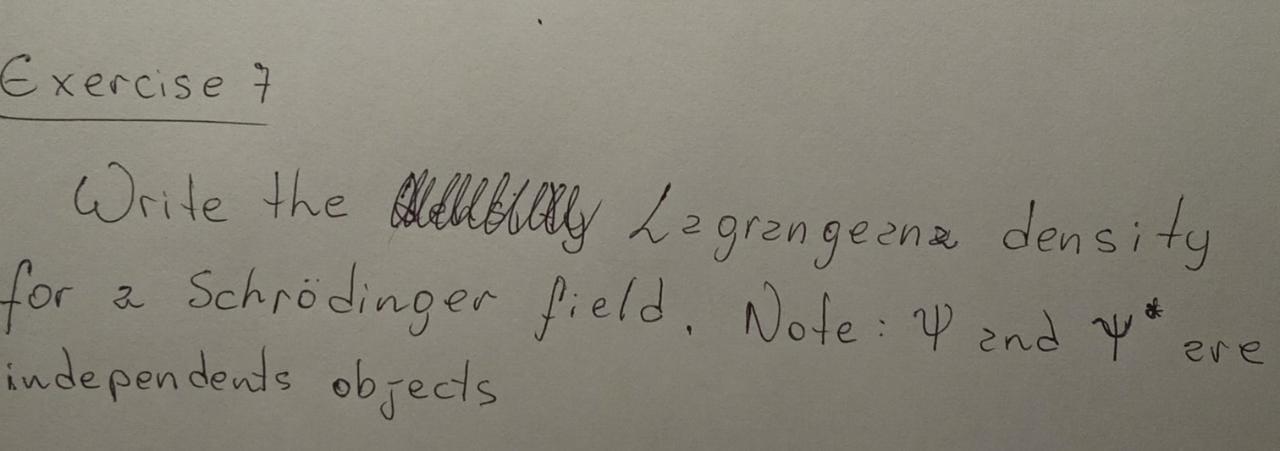 Exercise 7
Write the Lagrangeana density
for a Schrödinger field. Note: Ψ and Ψ* are
independents objects